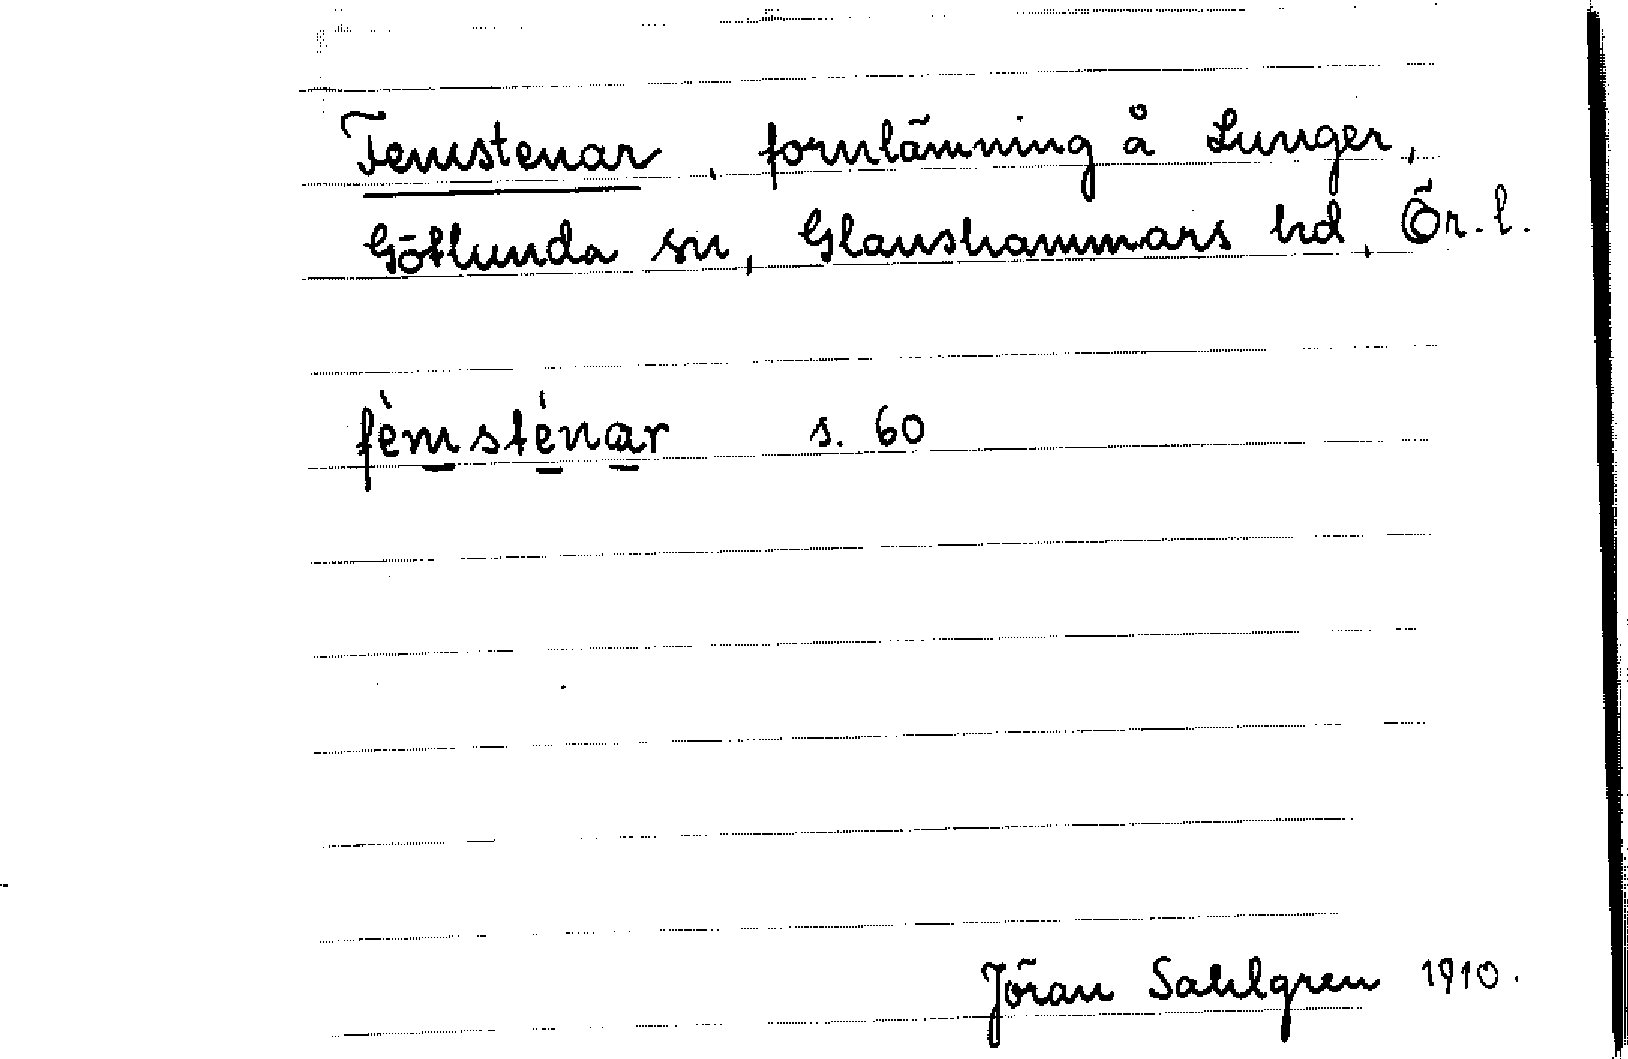 Femstenar, fornlämning å Lunger,
Götlunda sn, Glanshammars hd, Ör. l.
fèmsténar s. 60
Jöran Sahlgren 1910.